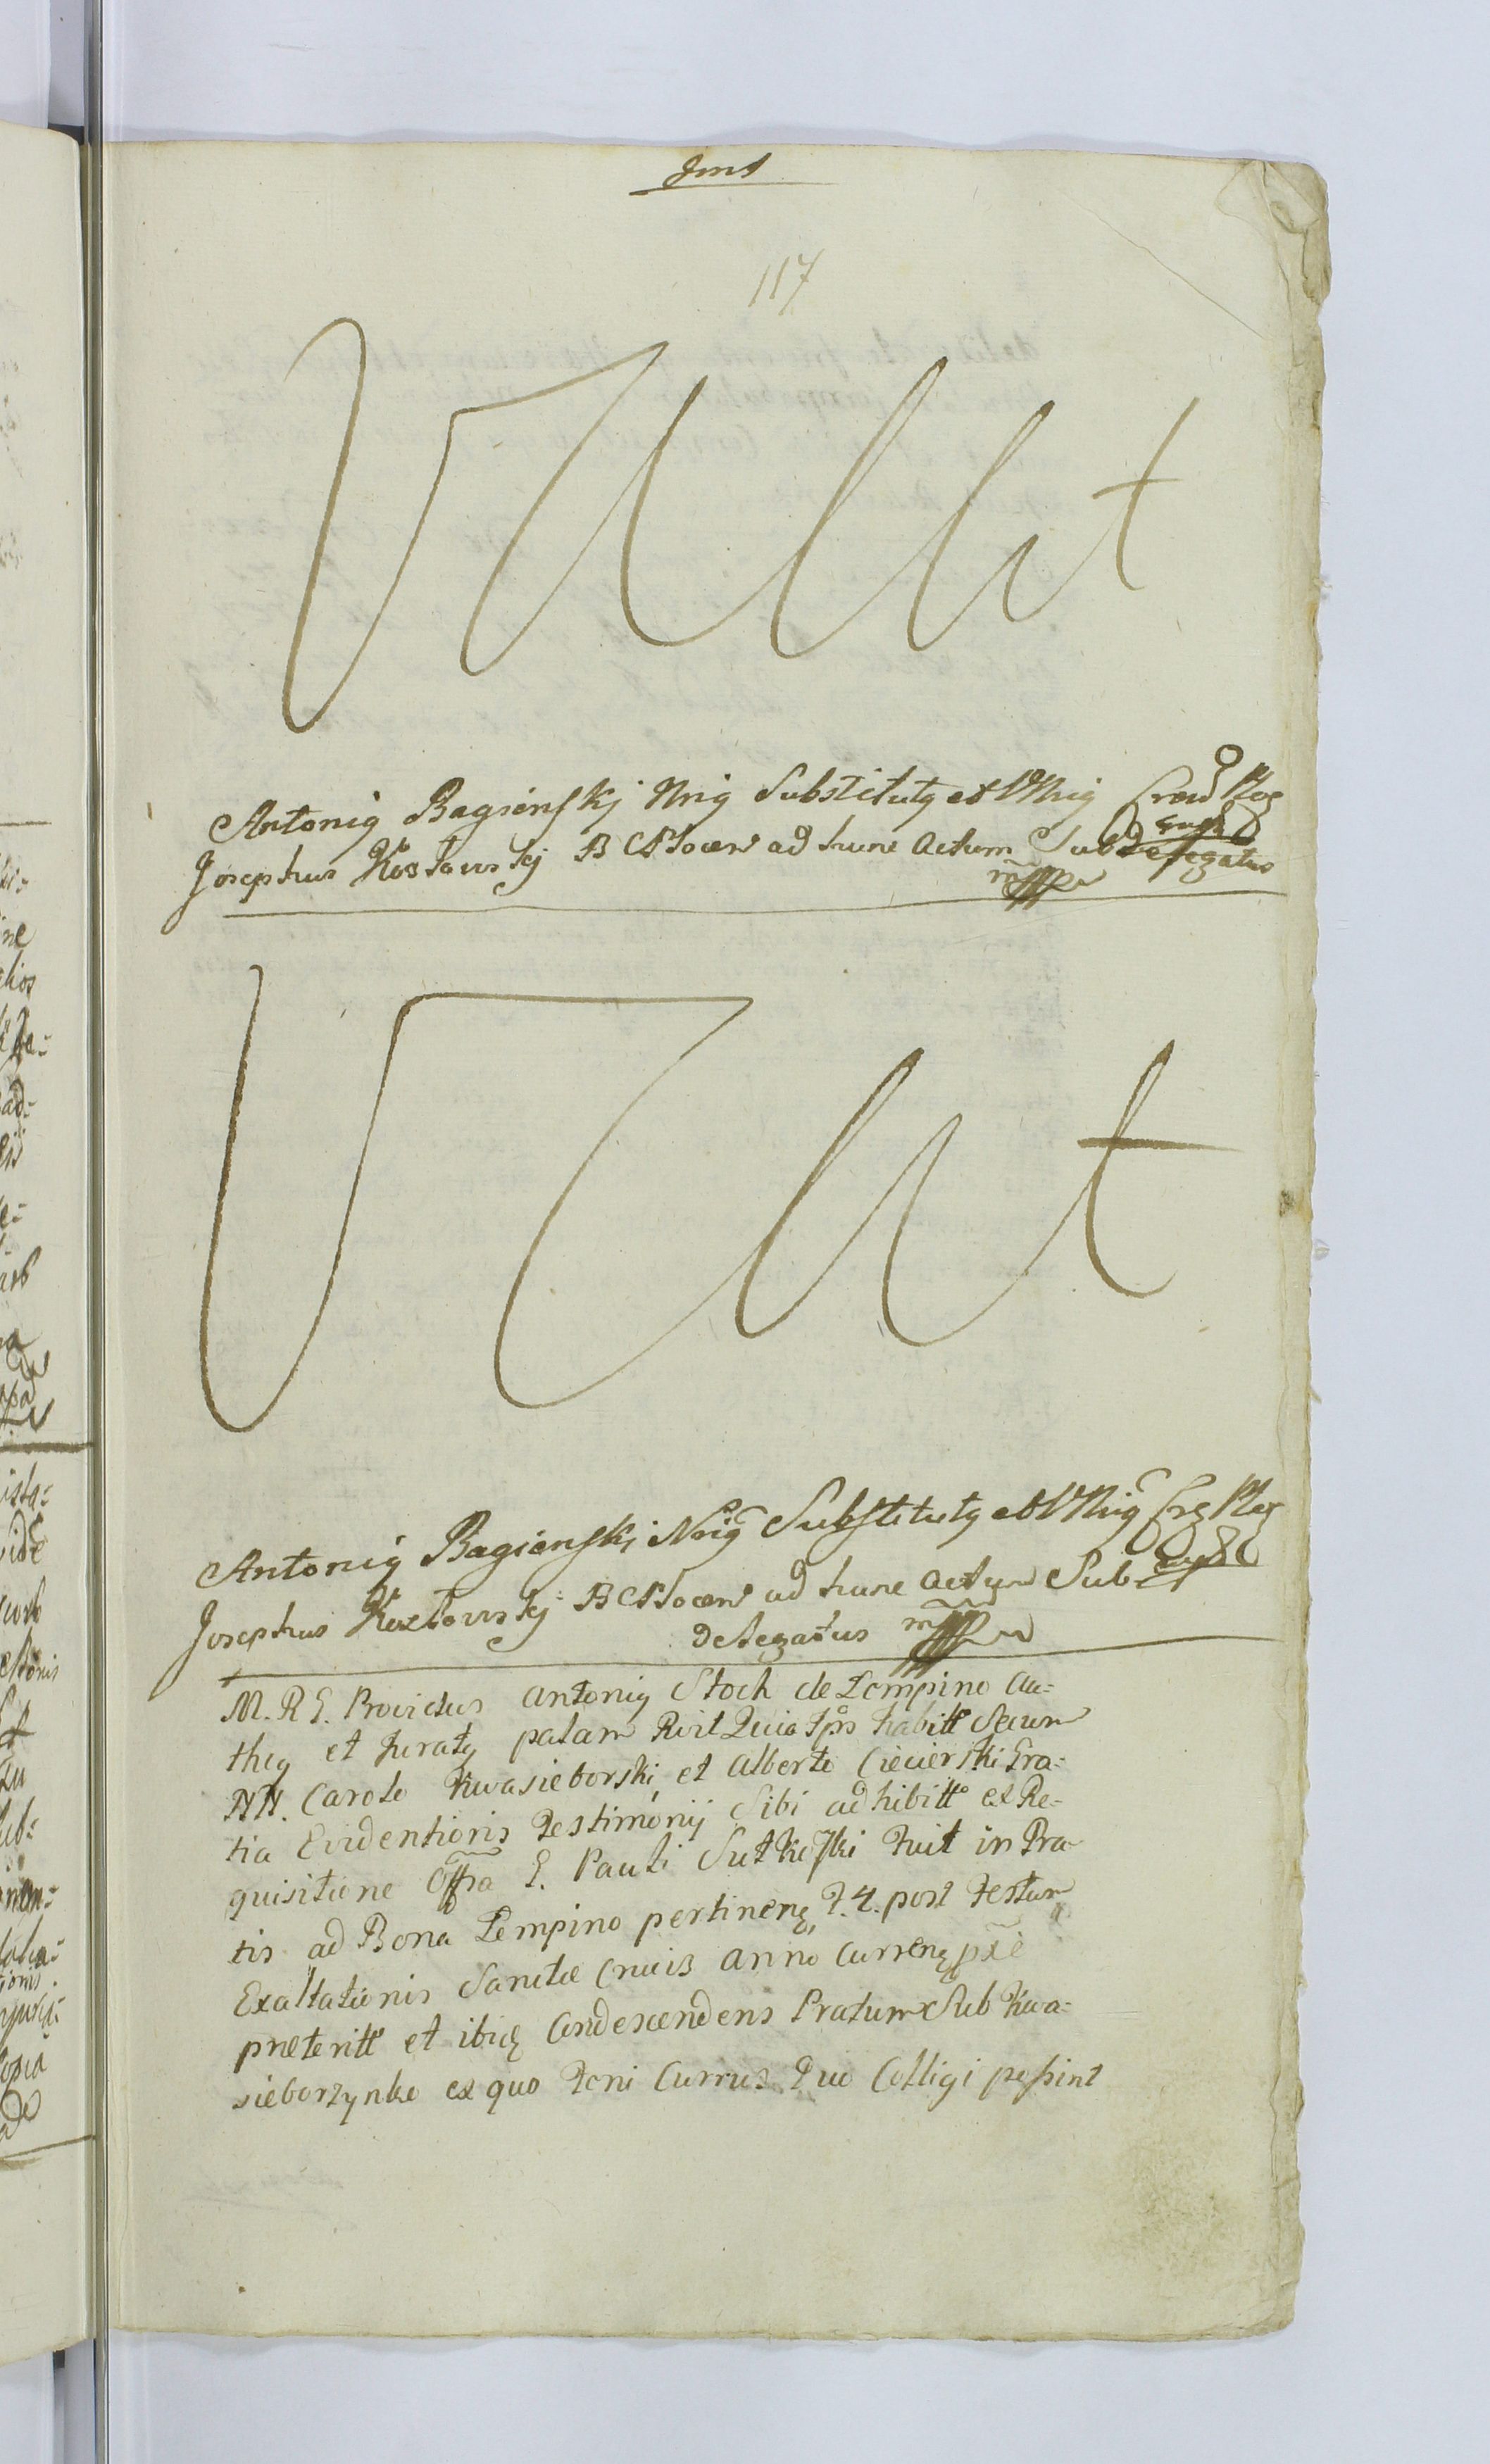 117
Vacat
Antonig Bagieńskj Nrig Substitutg et Vnig
Josephus Kozłowskj B CPłocen ad hunc actum Subdelegatus
mpp
Vacat
Antonig Bagienski Nrig Substitutg et Vnig
Josephus Kozłowskj B CPłocen ad hunc actum Sub
delegatus mpp
M. R E. Providus Antonig Stoch de Łempino au=
thg et Juratg palam Rvit Quia Ips habitt Secum
NN. Carolo Kwasieborski et Alberto Ciecierski Gra=
tia Evidentioris Testimonij Sibi adhibitt ex Re=
quisitione Offsa G. Pauli Sutkoski Fuit in Pra=
tis ad Bona Łempino pertineng F. 4. post Festum
Exaltationis Sanctæ Crucis anno Curreng pxe
præteritt et ibidg Condescendens Pratum Sub Kwa=
sieborzynko ex quo Feni Currus Duo Colligi possint